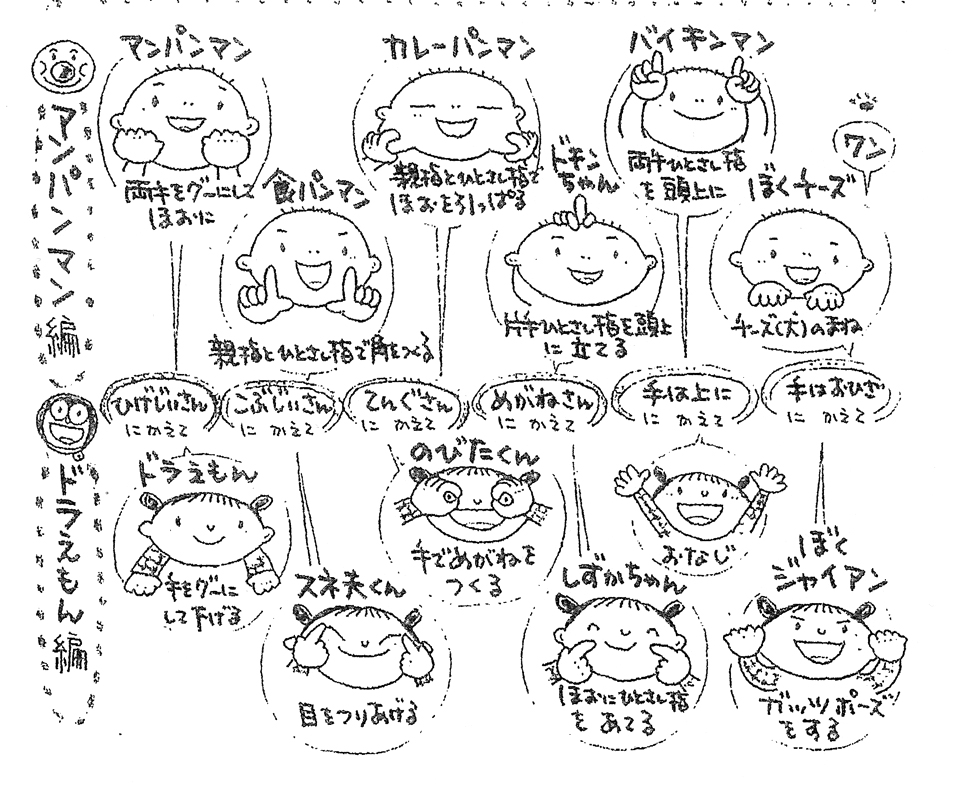 アンパンマン編
アンパンマン
両手をグーにして
ほおに
食パンマン
親指とひとさし指で角をつくる
カレーパンマン
親指とひとさし指で
ほおを引っぱる
ドキン
ちゃん
片手ひとさし指を頭上
に立てる
バイキンマン
両手ひとさし指
を頭上に
ぼくチーズ
ワン
チーズ(犬)のまね
ひげじいさん
にかえて
こぶじいさん
にかえて
てんぐさん
にかえて
めがねさん
にかえて
手は上に
にかえて
手はおひざ
にかえて
ドラえもん編
ドラえもん
手をグーに
して下げる
スネ夫くん
目をつりあげる
のびたくん
手でめがねを
つくる
しずかちゃん
ほおにひとさし指
をあてる
おなじ
ぼく
ジャイアン
ガッツポーズ
をする